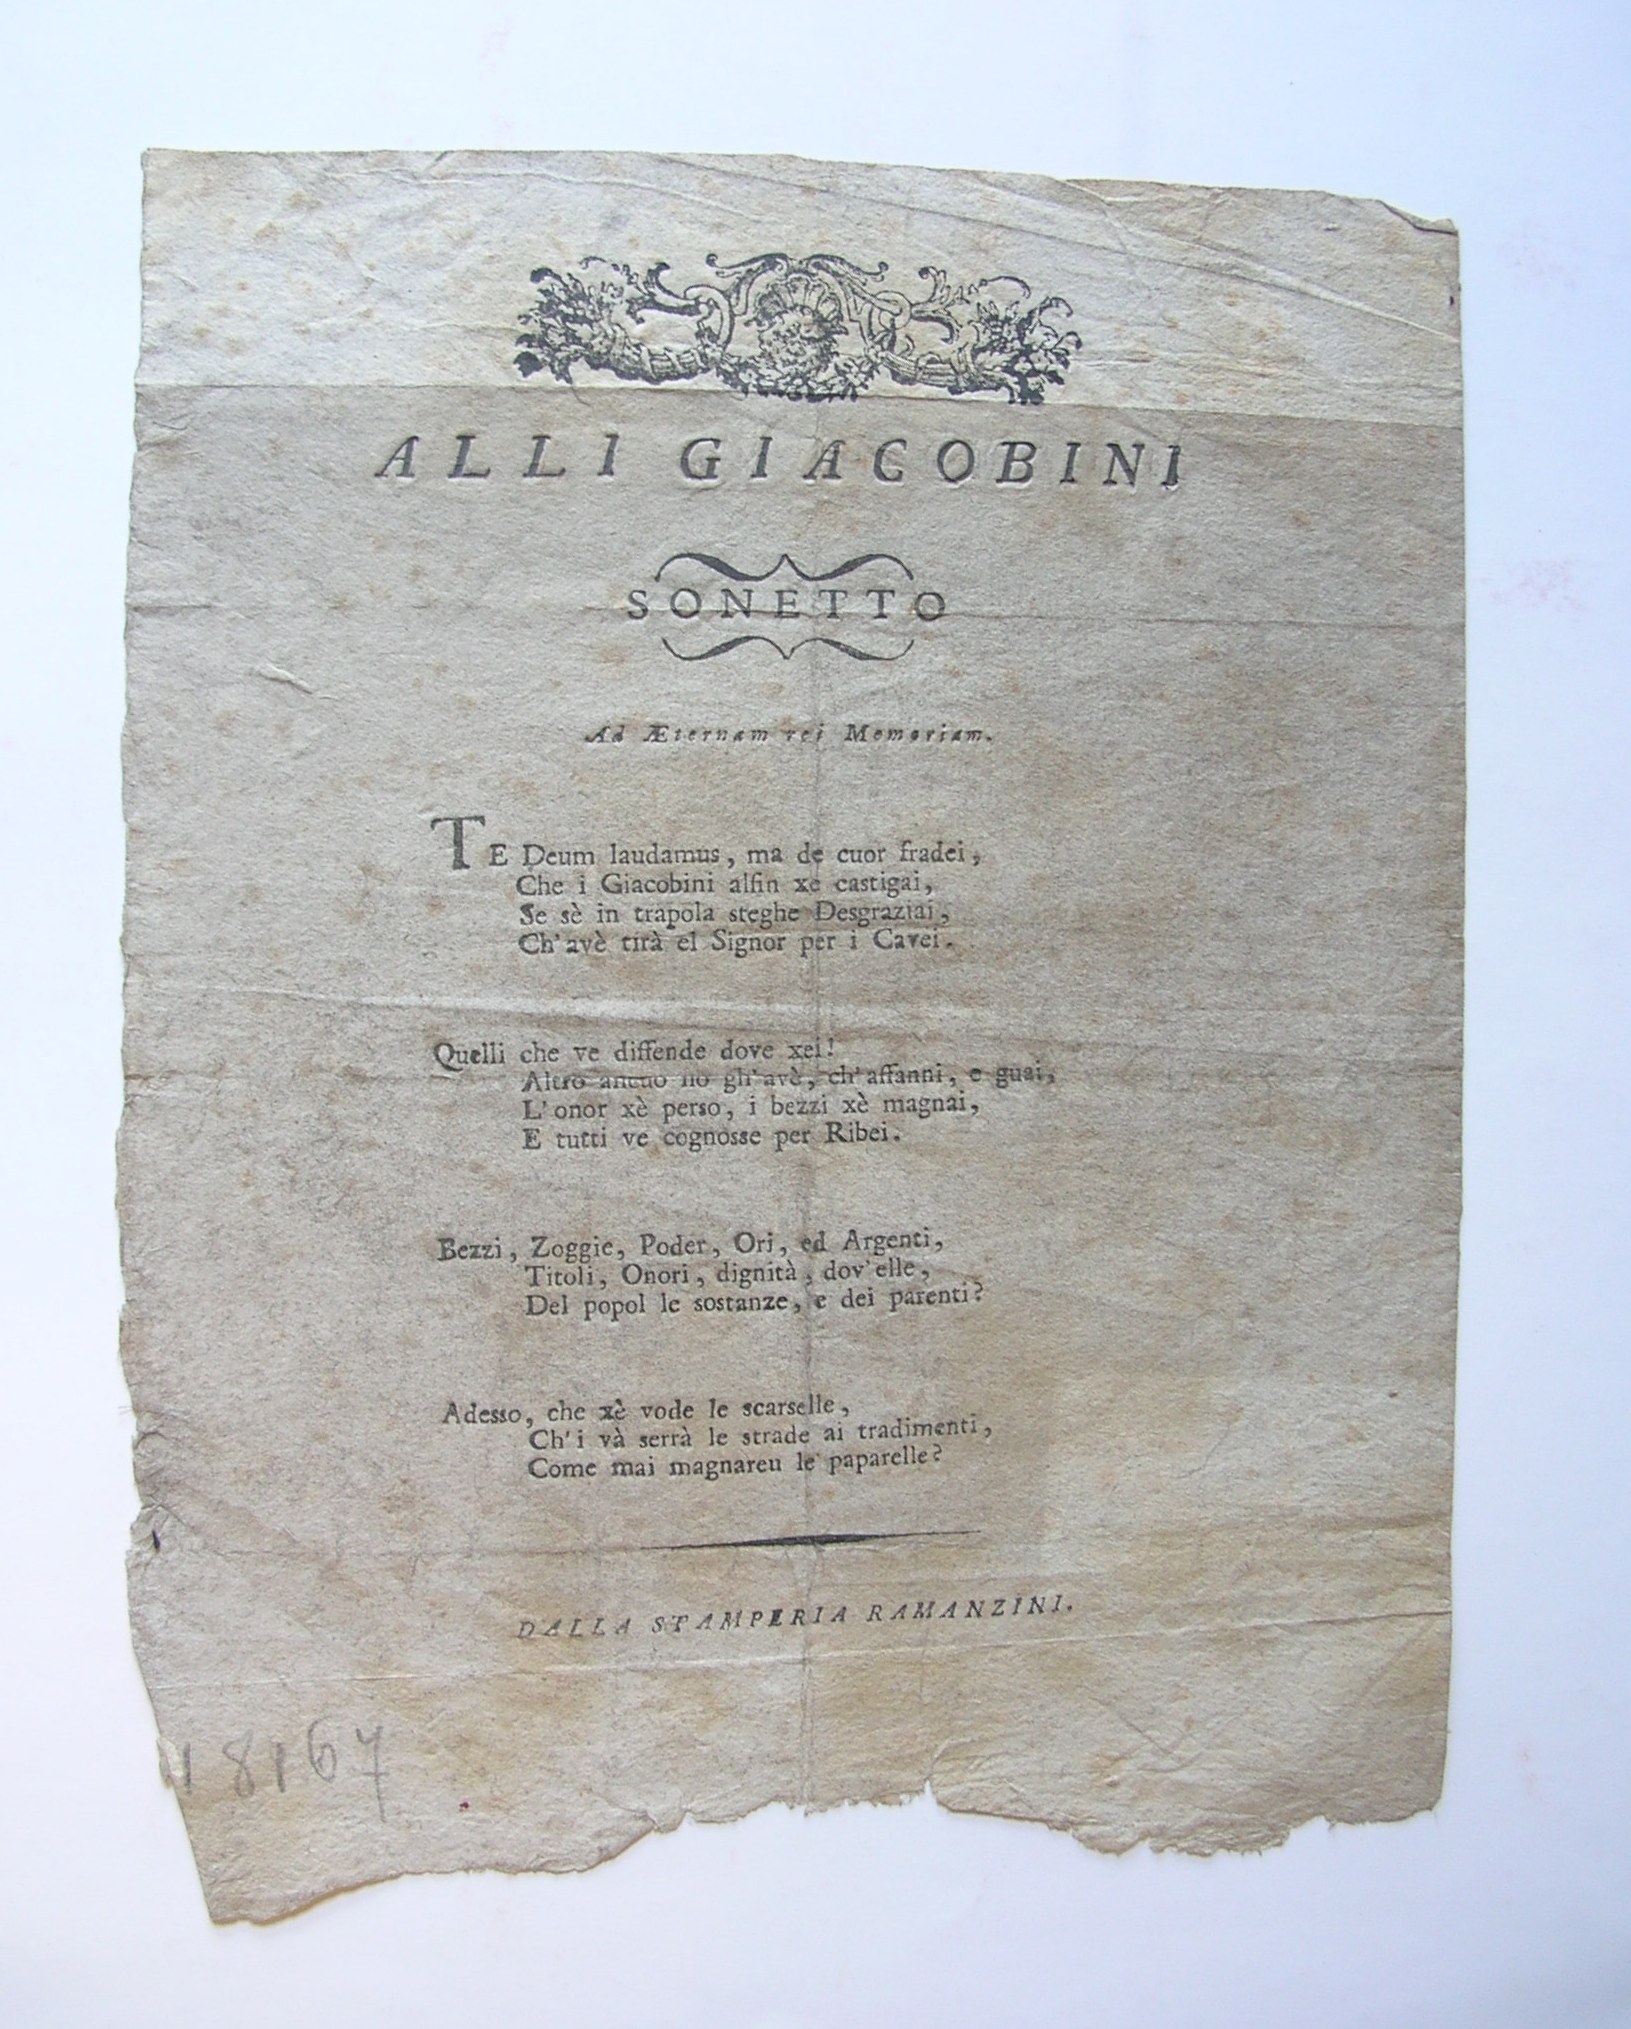 ALLI GIACOBINI
SONETTO
Ad Æternam rei Memoriam.
TE Deum laudamus, ma de cuor fradei,
Che i Giacobini alfin xe castigai,
Se sè in trapola steghe Desgraziai,
Ch'avè tirà el Signor per i Cavei.
Quelli che ve diffende dove xei!
Altro ancuo no gh'avè, ch'affanni, e guai,
L'onor xè perso, i bezzi xè magnai,
E tutti ve cognosse per Ribei.
Bezzi, Zoggie, Poder, Ori, ed Argenti,
Titoli, Onori, dignità, dov'elle,
Del popol le sostanze, e dei parenti?
Adesso, che xè vode le scarselle,
Ch'i và serrà le strade ai tradimenti,
Come mai magnareu le paparelle?
DALLA STAMPERIA RAMANZINI.
18167